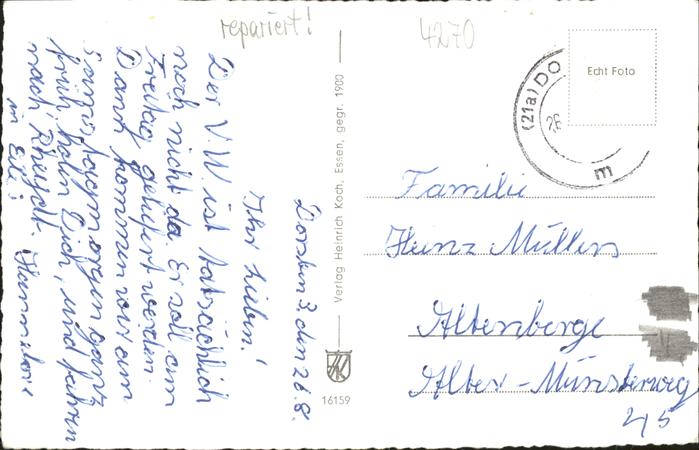 repariert!
4270
Dorsten 3, den 26.8.
Ihr Lieben!
Der V.W. ist tatsächlich
noch nicht da. Er soll am
Freitag geliefert werden.
Dann kommen wir am
Samstagmorgen ganz
früh, holen Dich, und fahren
nach Rheydt.
in Eile:
Hannelore
Verlag Heinrich Koch, Essen, gegr. 1900
16159
Echt Foto
(21a) DO
26
m
Familie
Heinz Müllers
Altenberge
Alter-Münsterweg
45